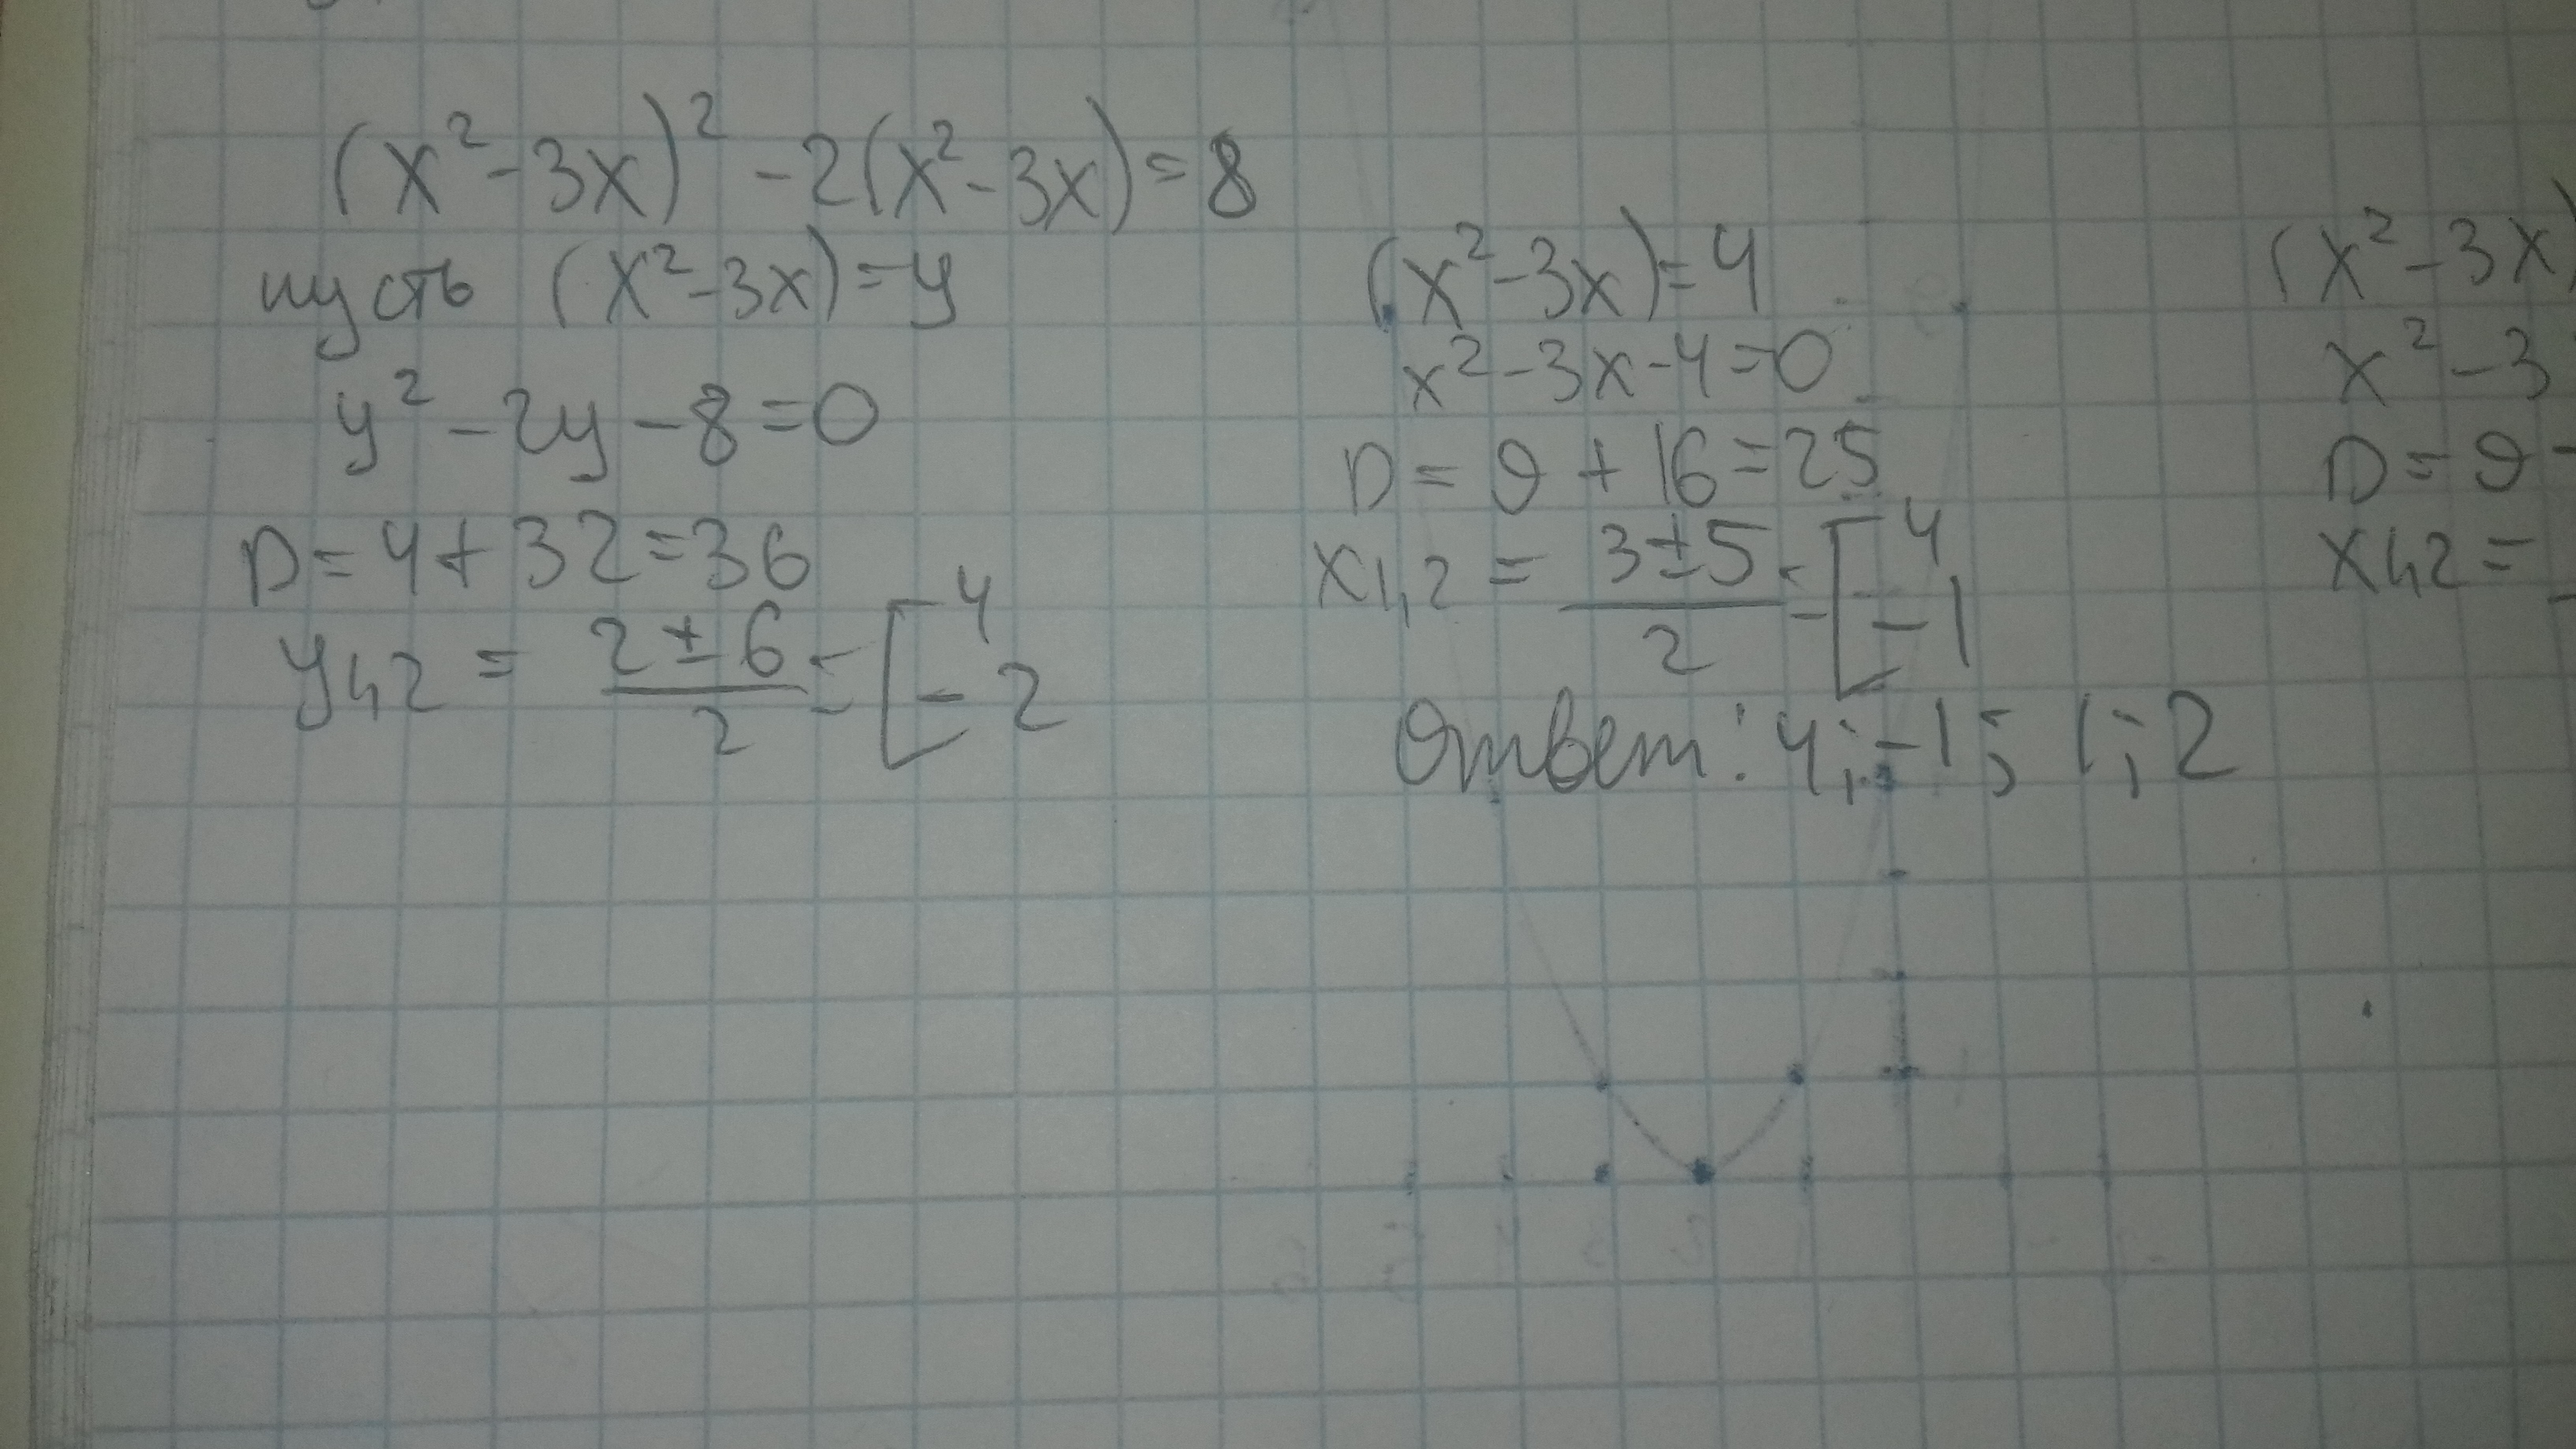 (x² - 3x)² - 2(x² - 3x) = 8
пусть (x² - 3x) = y
y² - 2y - 8 = 0
D = 4 + 32 = 36
y1,2 = (2 ± 6)/2 = [4
-2
(x² - 3x) = 4
x² - 3x - 4 = 0
D = 9 + 16 = 25
x1,2 = (3 ± 5)/2 = [4
-1
Ответ: 4; -1; 1; 2
(x² - 3x)
x² - 3
D = 9 -
x1,2 =